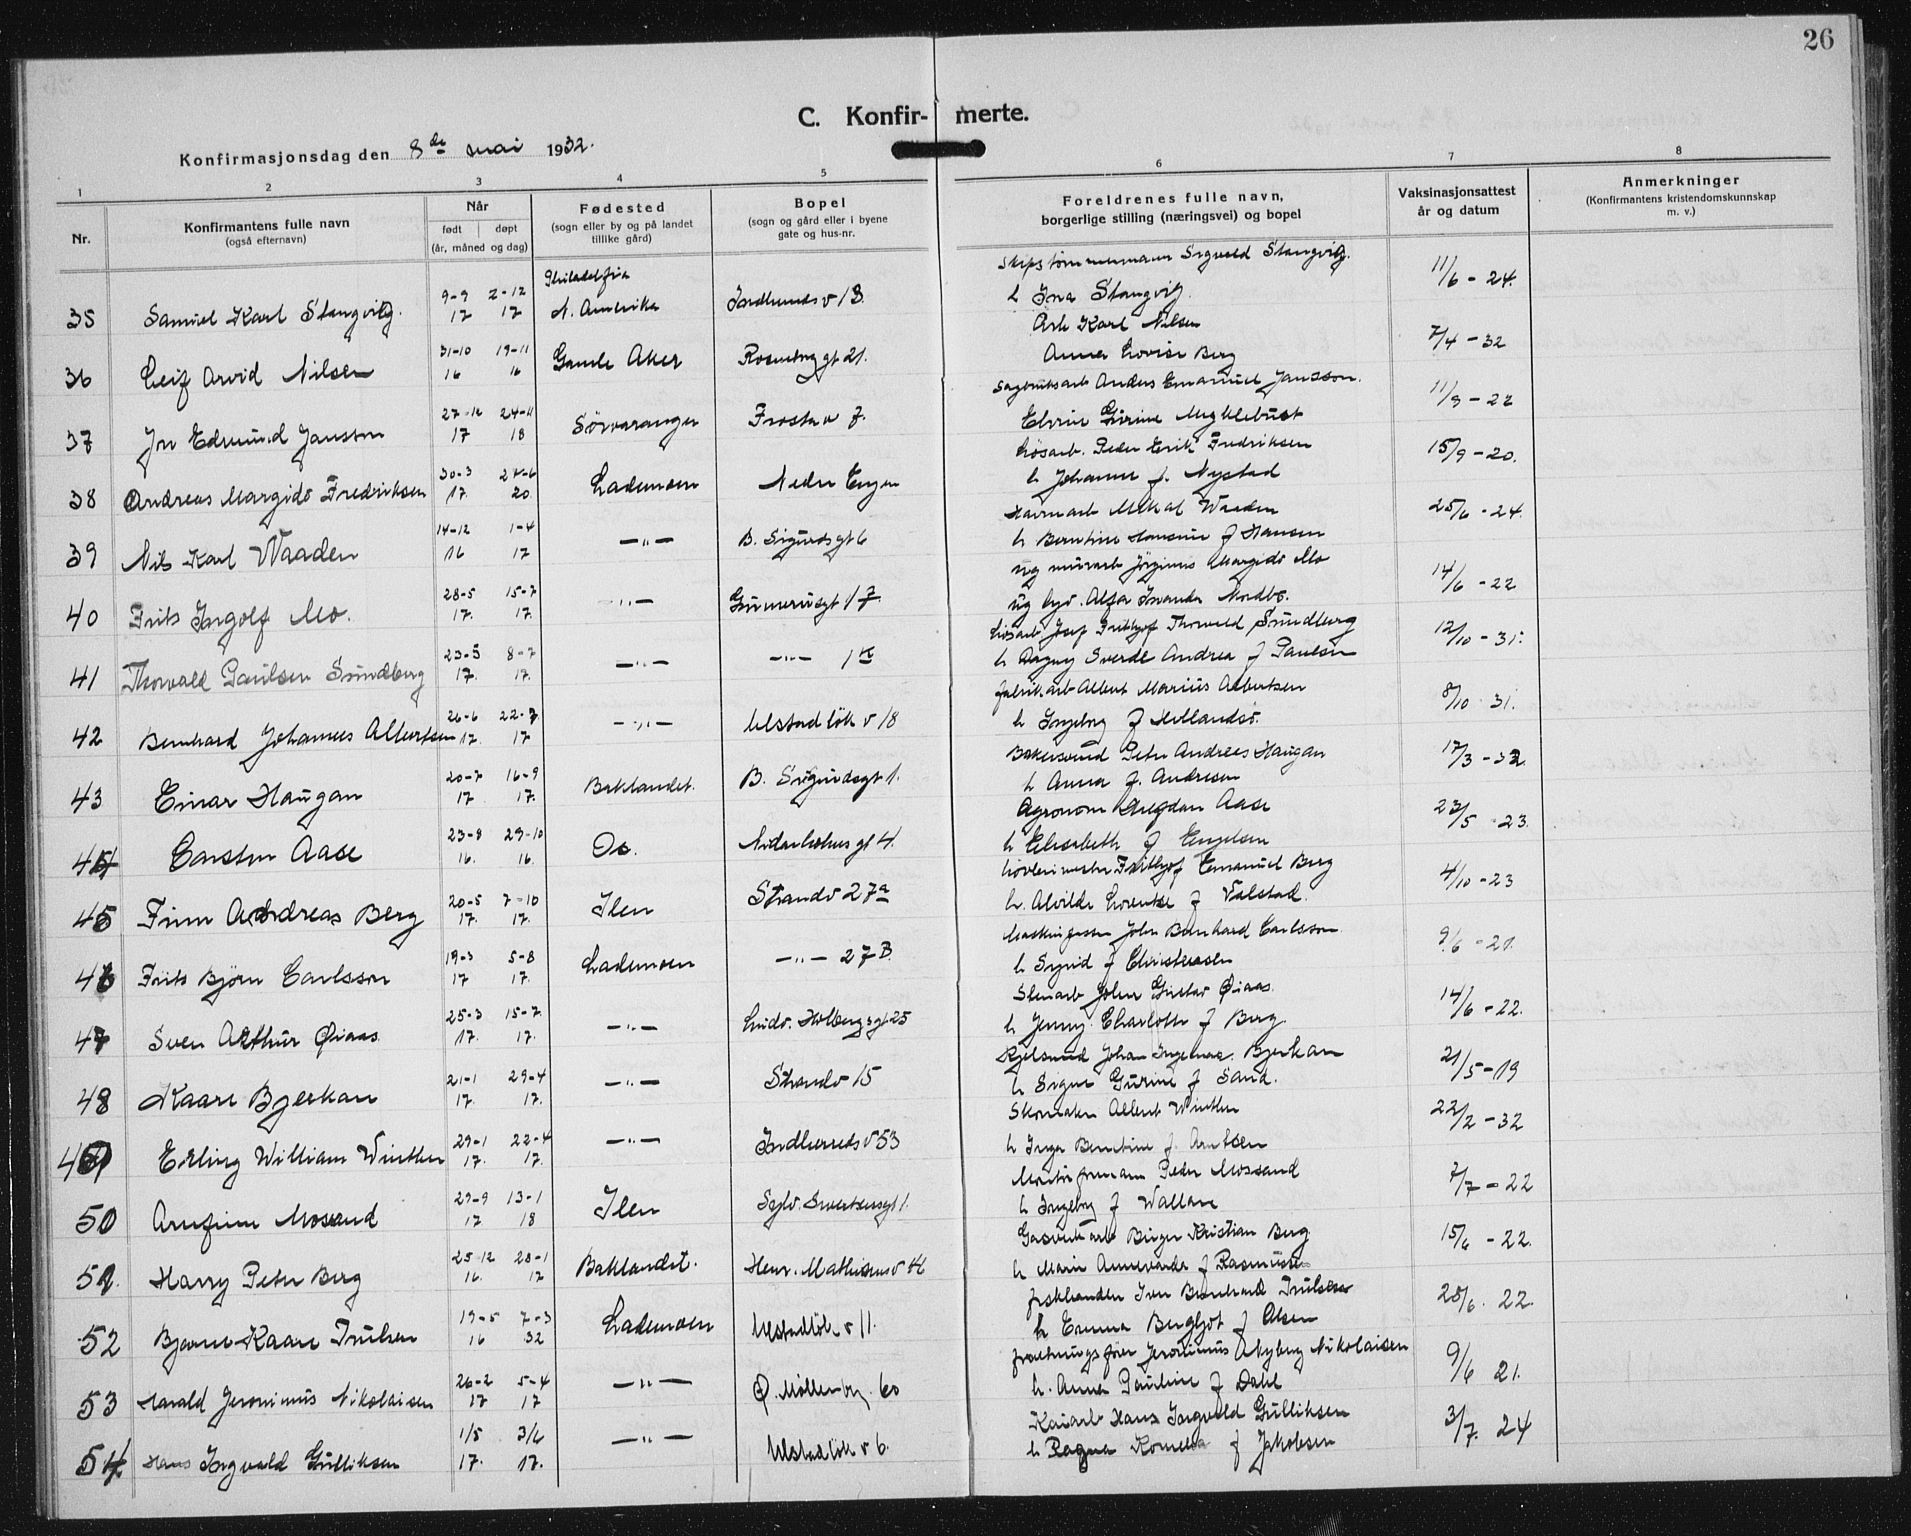 26
C. Konfir- merte.
Konfirmasjonsdag den 8de mai 1932.
1 2 3 4 5 6 7 8
Nr.
Konfirmantens fulle navn
(også efternavn)
Når
født døpt
(år, måned og dag)
Fødested
(sogn eller by og på landet
tillike gård)
Bopel
(sogn og gård eller i byene
gate og hus-nr.
Foreldrenes fulle navn,
borgerlige stilling (næringsvei) og bopel
Vaksinasjonsattest
år og datum
Anmerkninger
(Konfirmantens kristendomskunnskap
m. v.)
35 Samuel Karl Stangvig. 9-9 17 2-12 17 Philadelfia N. Amerika Indherredsv 13 Skipstømmermann Sigvald Stangvig.
h Ina Stangvig. 11/6 - 24.
36 Leif Arvid Nilsen 31-10 16 19-11 16 Gamle Aker Rosenborg gt 21. Arb Karl Nilsen
Anna Lovise Berg 7/4 - 32
37 Jon Edmund Jansson 27-12 17 24-11 18 Sörvaranger Frostav 7. Sagbruksarb Anders Emanuel Jansson.
Myklebust 11/9 - 22
38 Andreas Margido Fredriksen 30-3 17 27-6 20 Lademoen Nedre Engen Løsarb. Peder Erik Fredriksen
h Johanne f. Nystad 15/9 - 20.
39 Nils Karl Waaden 14-12 16 1-4 17 —"— B. Sigurds gt 6 Havnearb Mikal Waaden
h Berntine Hansine f Hansen 25/6 - 24.
40 Frits Ingolf Mo. 28-5 17. 15-7 17. —"— Gunnerusgt 17. ug murarb Jørginus Margido Mo
ug Alfa Nordbo. 14/6 - 22
41 Thorvald Paulsen Sundberg 23-5 17. 8-7 17. —"— —"— 1 Løsarb Josef Fridthjof Thorvald Sundberg
h Dagny Sverde Andrea f Paulsen 12/10 - 31.
42 Bernhard Johannes Albertsen 26-6 17. 22-7 17 —"— Ulstadløk v 18 fabrik.arb Albert Marius Albertsen
h Ingeborg f Hellandsø. 8/10 31.
43 Einar Haugan 20-7 17 16-9 17. Baklandet. B. Sigurdsgt 1. Bakersvend Peter Andreas Haugan
h Anna f. Andresen 17/3 - 32
44 Carsten Aase 23-8 16. 29-10 16. Os. Nidarholms gt 4. Agronom Aase
h Elisabeth f Engelsen 23/5 23.
45 Finn Andreas Berg 20-5 17. 7-10 17. Ilen Strandv 27a Høvlerimester Fridthjof Emanuel Berg
h. Alvilde Lorentse f Valstad. 4/10 - 23
46 Frits Bjørn Carlsson 19-3 17 5-8 17. Lademoen —"— 27 B. Maskinpasser John Bernhard Carlsson.
h Sigrid f Christensen 9/6 - 21.
47 Sven Arthur Øiaas 25-3 17. 15-7 17. —"— Ludv. Holbergs gt 25 Stenarb Johan Gustav Øiaas.
h Jenny Charlotte f Berg. 14/6 - 22.
48 Kaare Bjerkan 21-1 17. 29-4 17. —"— Strandv 15 Kjelsmed Johan Ingemar Bjerkan
h Signe Gurine f Sand. 21/5 - 19
49 Erling William Winther 29-1 17. 22-4 17. —"— Indherredsv 53 Skomaker Albert Winther
h Inga Berntine f. Arntsen 22/2 - 32
50 Arnfinn Mosand 29-9 17 13-1 18 Ilen Sylv. Sivertsensgt 1. Peder Mossand
h Ingeborg f Wallan 7/7 - 22
51. Harry Peter Berg 25-12 16. 28-1 17 Baklandet. Henr. Mathisens v 4 Gasverkarb Birger Kristian Berg
h Marie f Rasmussen 15/6 - 22.
52 Bjarne Kaare Trulsen 19-5 16 7-3 32 Lademoen Ulstadløk. v 11. fiskhandler Iver Bernhard Trulsen
h Emma Bergljot f Olsen 28/6. 22.
53 Harald Jeronimus Nikolaisen 26-2 17 5-4 17 —"— Ø. Møllenbg. 60 forretningsfører Jeronimus Nyberg Nikolaisen
h. Anna Pauline f Dahl 9/6 21.
54 Hans Ingvald Gulliksen 1/5 17. 3/6 17. —"— Ulstadløk v 6. Kaiarb Hans Ingvald Gulliksen
h Ragna Kornelia f Jakobsen 3/7. 24